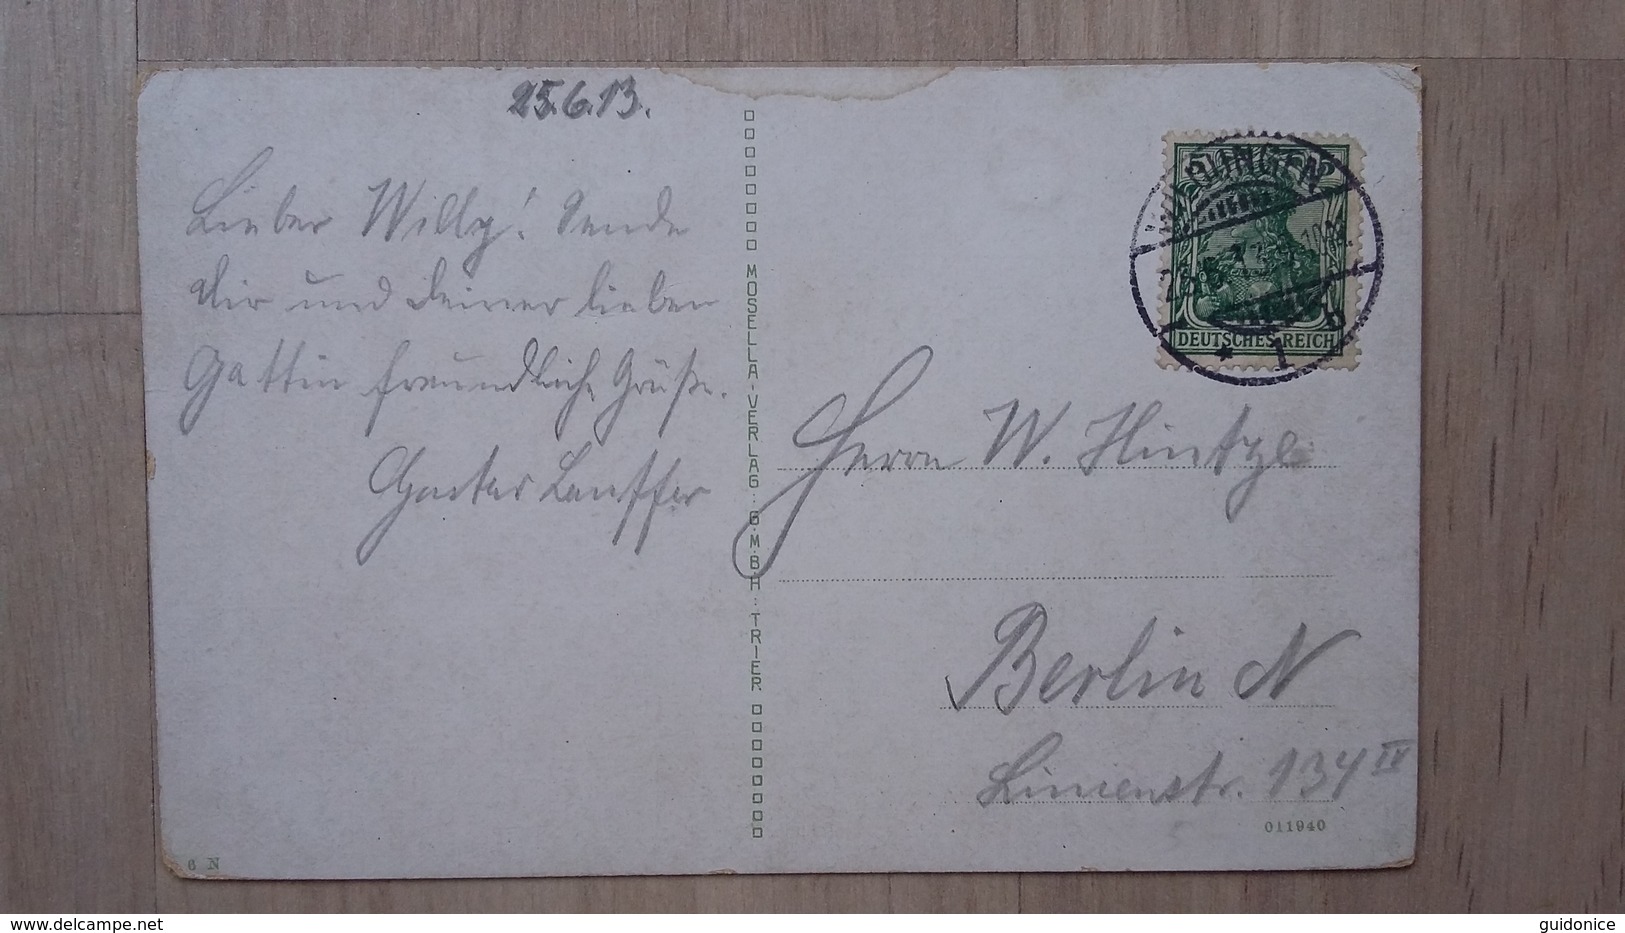 25.6.13.
Lieber Willy! Sende
Dir und Deiner lieben
Gattin freundliche Grüße.
Lauffer
MOSELLA-VERLAG G.M.B.H. TRIER
WILDUNGEN
25.6.13
1 b
DEUTSCHES REICH
Herrn W. Hintze
Berlin N
Linienstr. 134 IV
011940
6 N
delcampe.net
guidonice